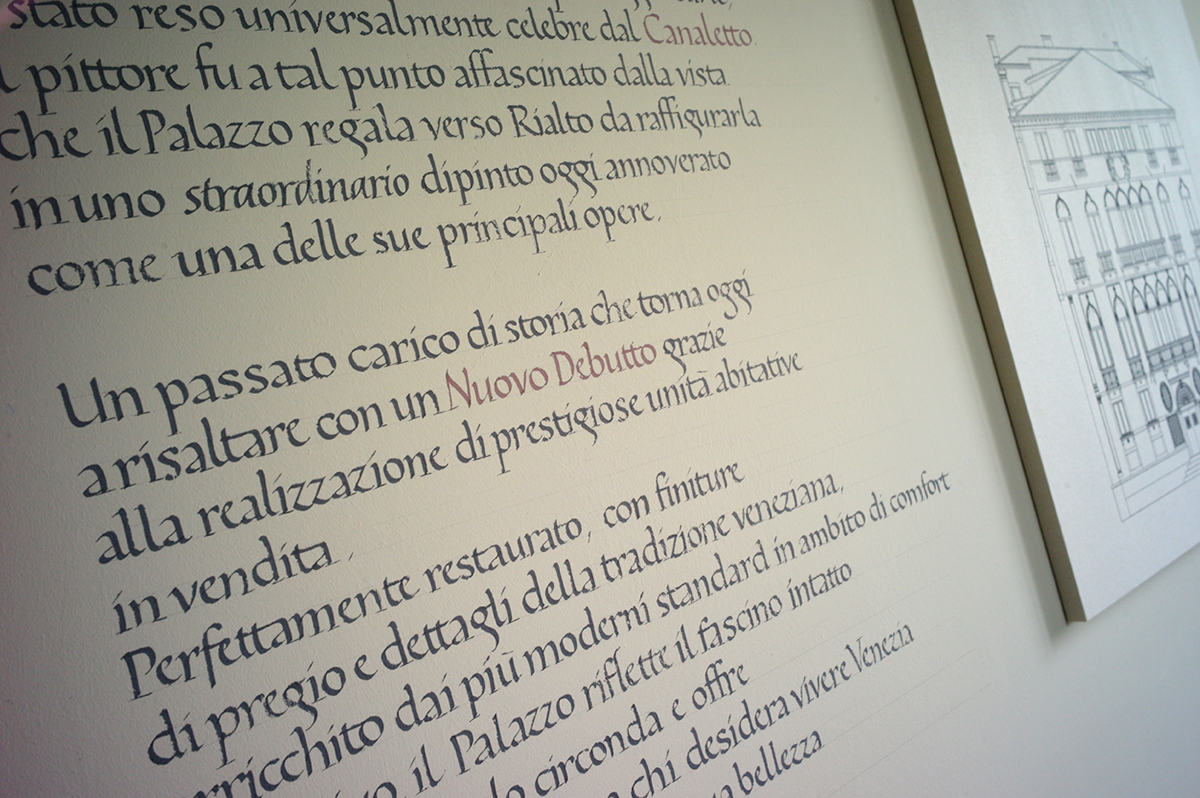 stato reso universalmente celebre dal Canaletto.
l pittore fu a tal punto affascinato dalla vista
che il Palazzo regala verso Rialto da raffigurarla
in uno straordinario dipinto oggi annoverato
come una delle sue principali opere.
Un passato carico di storia che torna oggi
a risaltare con un Nuovo Debutto grazie
alla realizzazione di prestigiose unità abitative
in vendita.
Perfettamente restaurato, con finiture
di pregio e dettagli della tradizione veneziana,
rricchito dai più moderni standard in ambito di comfort
il Palazzo riflette il fascino intatto
lo circonda e offre
chi desidera vivere Venezia
bellezza